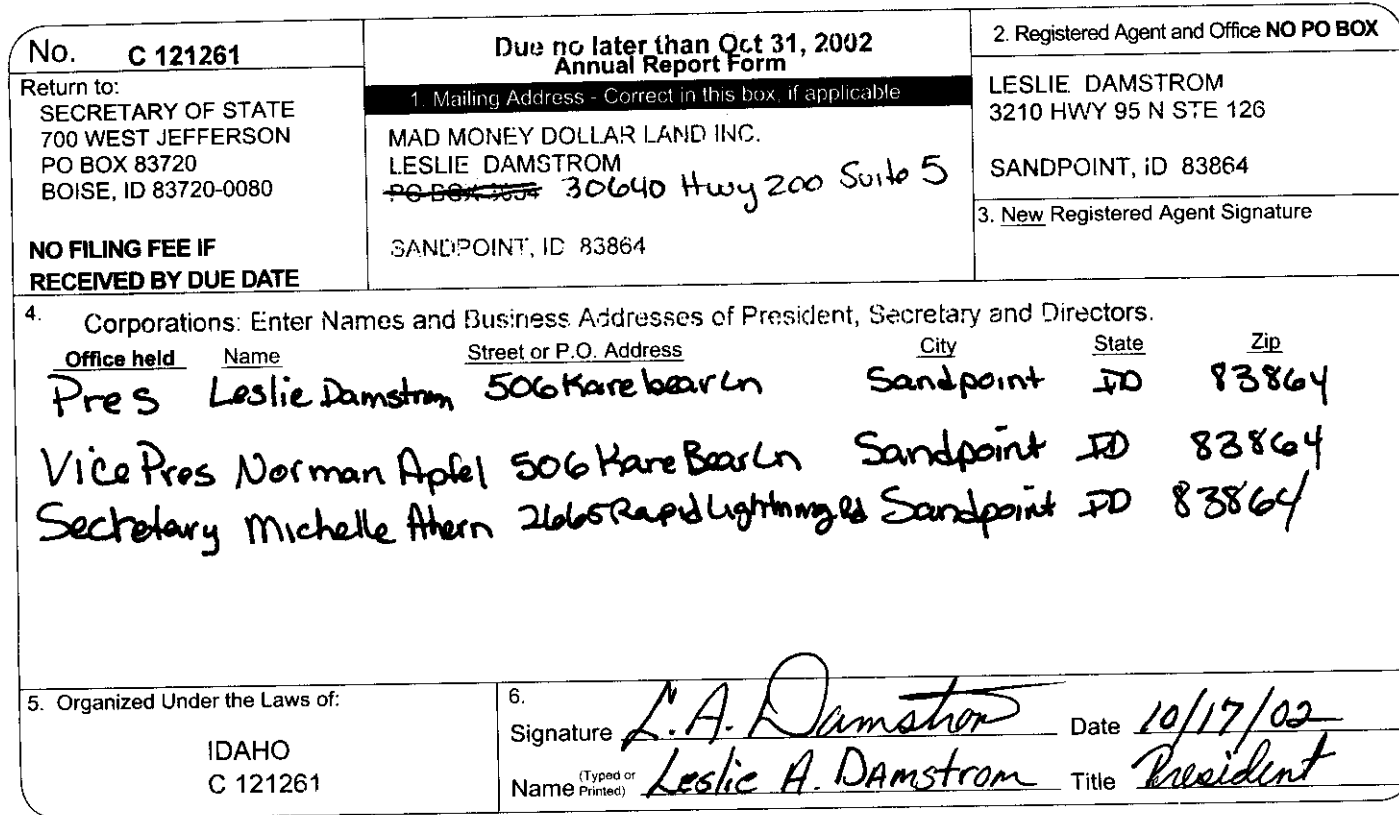 No. C 121261
Return to:
SECRETARY OF STATE
700 WEST JEFFERSON
PO BOX 83720
BOISE, ID 83720-0080
NO FILING FEE IF
RECEIVED BY DUE DATE
Due no later than Oct 31, 2002
Annual Report Form
1. Mailing Address - Correct in this box, if applicable
MAD MONEY DOLLAR LAND INC.
LESLIE DAMSTROM
PO BOX 30640 Hwy 200 Suite 5
SANDPOINT, ID 83864
2. Registered Agent and Office NO PO BOX
LESLIE DAMSTROM
3210 HWY 95 N STE 126
SANDPOINT, ID 83864
3. New Registered Agent Signature
4. Corporations: Enter Names and Business Addresses of President, Secretary and Directors.
Office held Name Street or P.O. Address City State Zip
Pres Leslie Damstrom 506 Kare bear Ln Sandpoint ID 83864
Vice Pres Norman Apfel 506 Kare Bear Ln Sandpoint ID 83864
Secretary Michelle Ahern 2665 Rapid Lightning Rd Sandpoint ID 83864
5. Organized Under the Laws of:
IDAHO
C 121261
6.
Signature L. A. Damstrom Date 10/17/02
Name (Typed or Printed) Leslie A. Damstrom Title President